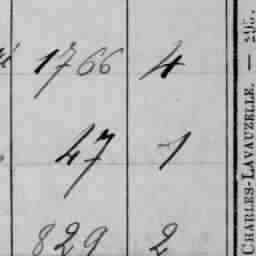 1766 4
47 1
829 2
CHARLES-LAVAUZELLE. — 295.